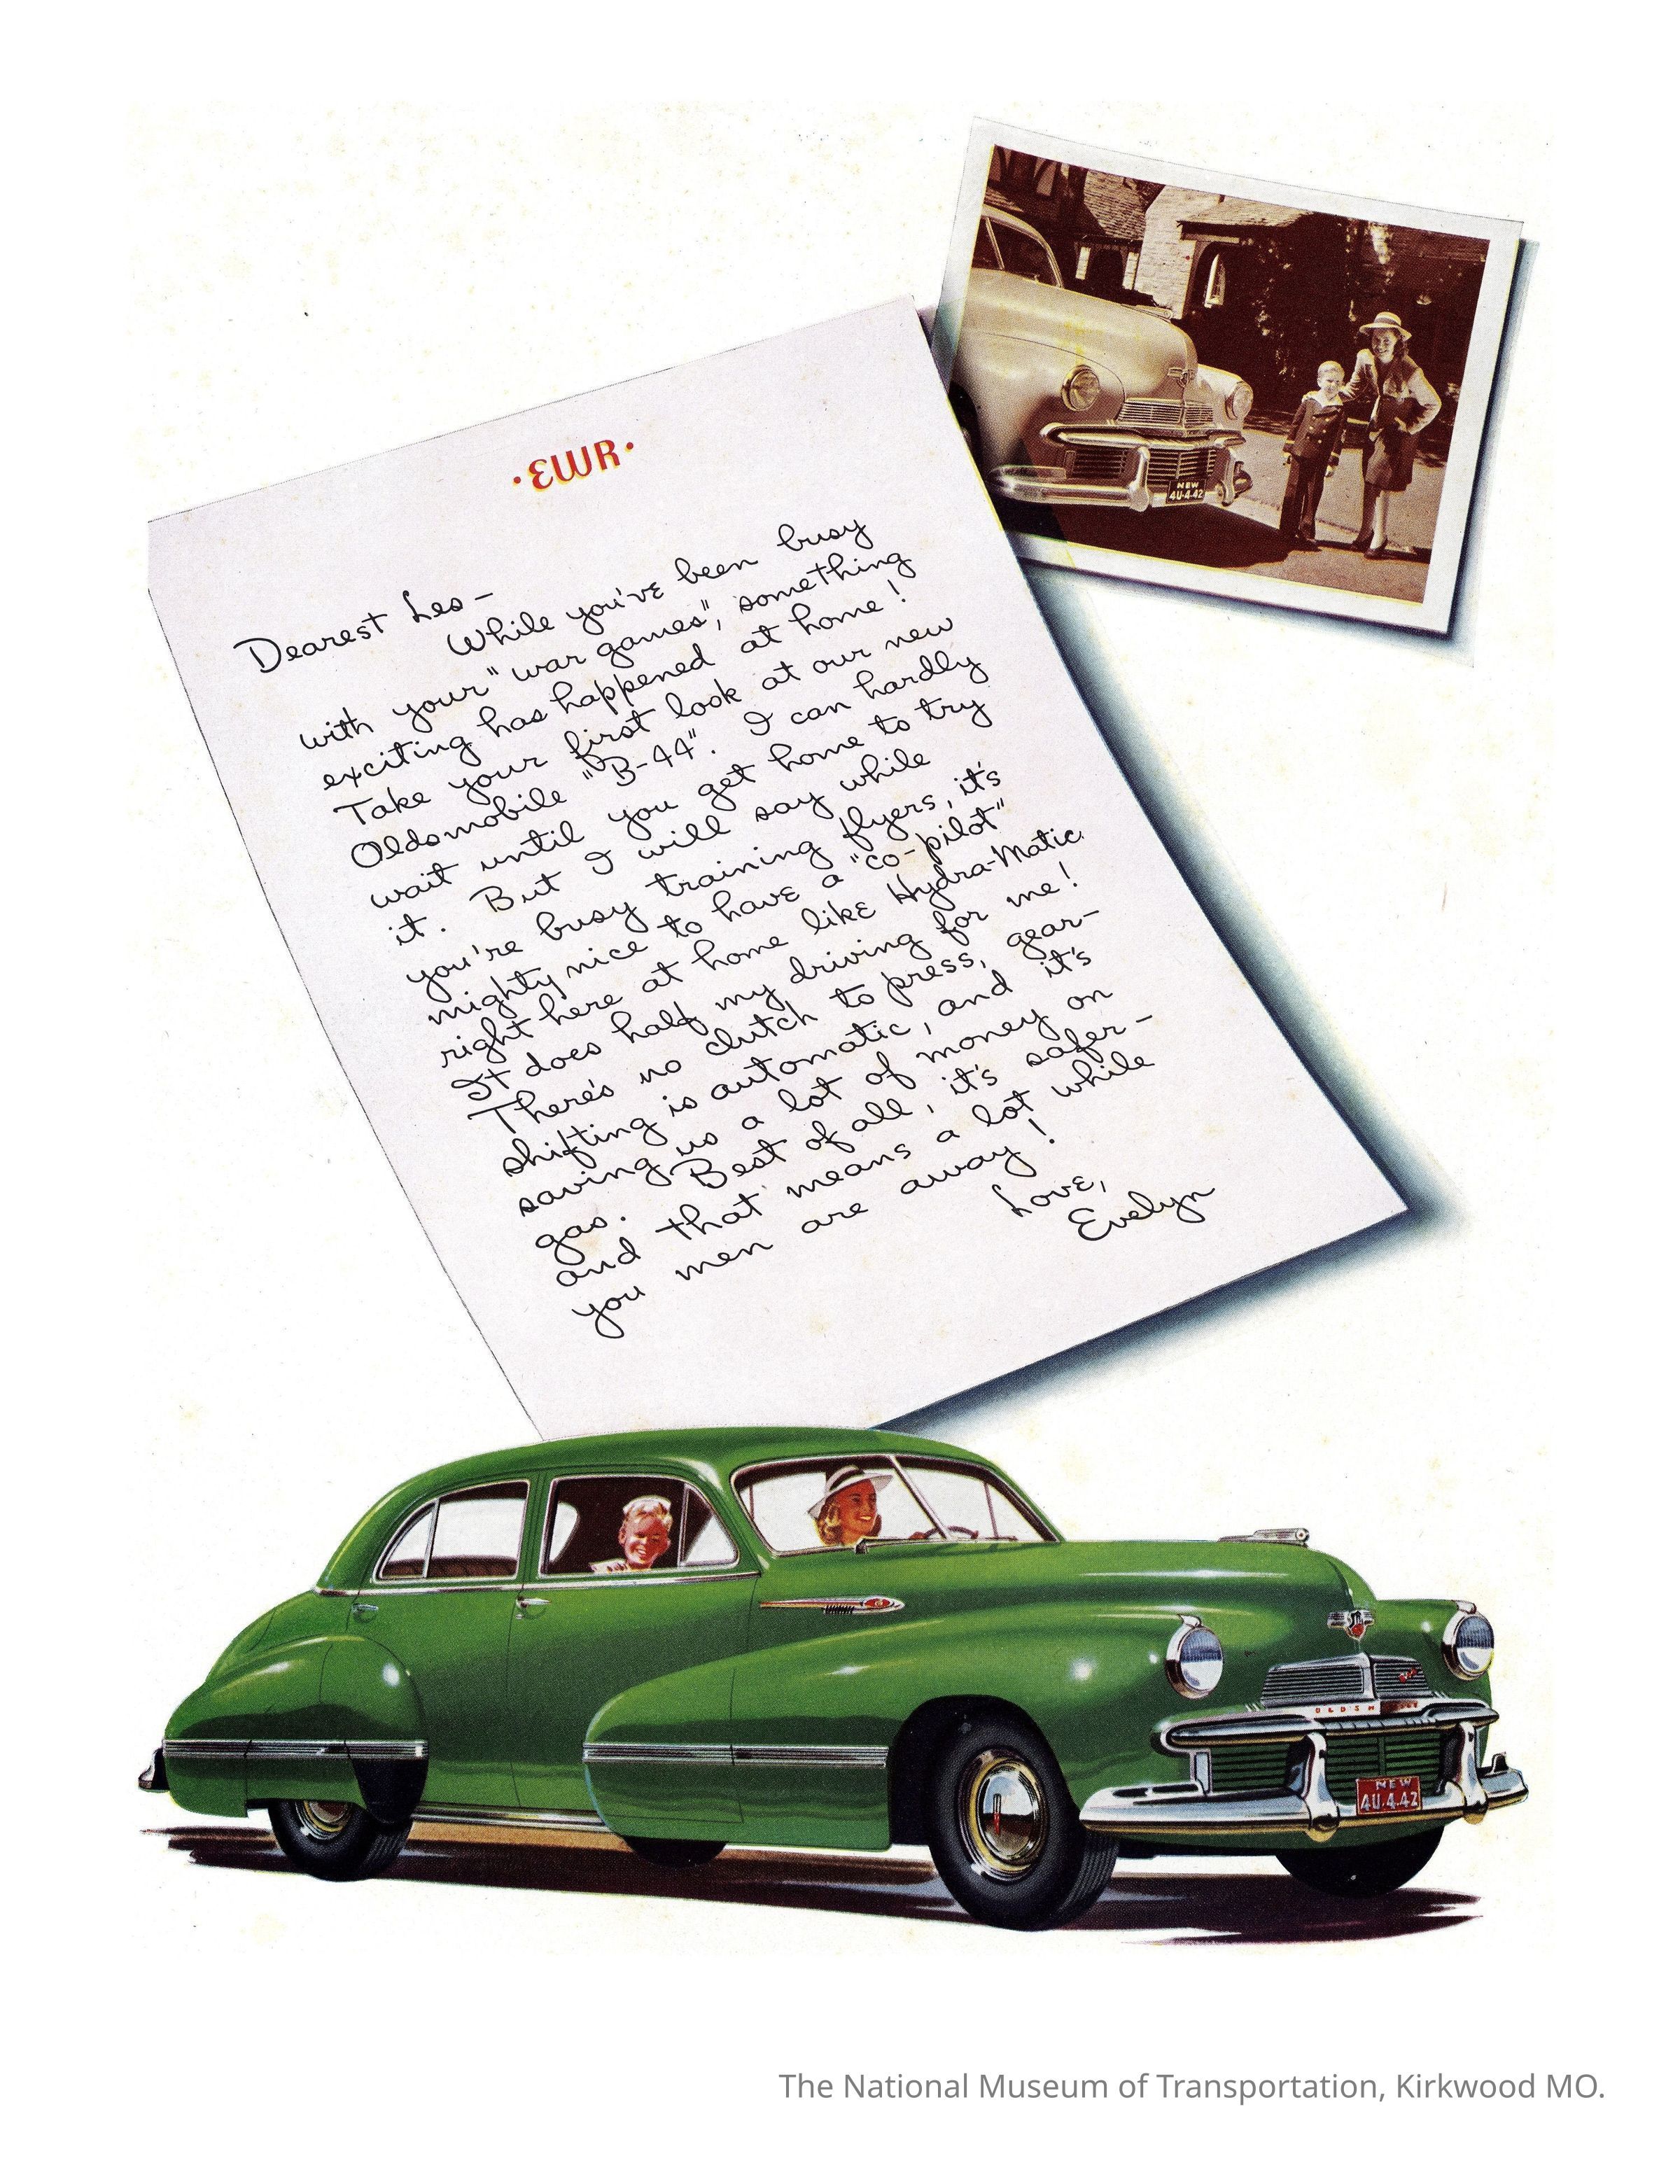 ·EWR·
Dearest Les –
While you've been busy
with your "war games", something
exciting has happened at home!
Take your first look at our new
Oldsmobile "B-44". I can hardly
wait until you get home to try
it. But I will say while
you're busy training flyers, it's
mighty nice to have a "co-pilot"
right here at home like Hydra-Matic.
It does half my driving for me!
There's no clutch to press, gear-
shifting is automatic, and it's
saving us a lot of money on
gas. Best of all, it's safer –
and that means a lot while
you men are away!
Love,
Evelyn
NEW
4U-4-42
OLDSMOBILE
NEW
4U.4.42
The National Museum of Transportation, Kirkwood MO.